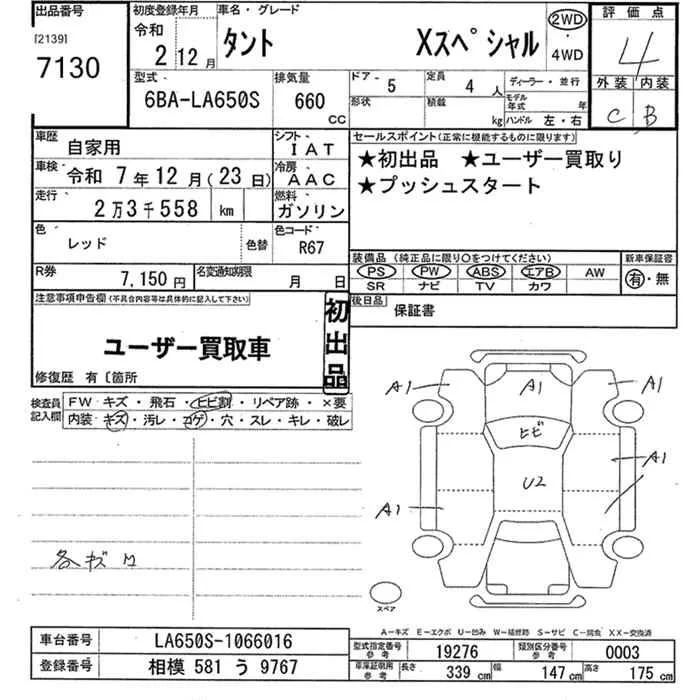 出品番号
[2139]
7130
初度登録年月
令和
2 12 月
車名・グレード
タント Xスペシャル
2WD
・
4WD
評価点
4
外装 内装
C B
型式
6BA-LA650S
排気量
660
CC
ドア 5
定員 4 人
ディーラー・並行
形状
積載 kg
モデル年式 年
ハンドル 左・右
車歴 自家用
シフト IAT
車検 令和 7年12月(23日)
冷房 AAC
走行 2万3千558 km
燃料 ガソリン
色 レッド
色替
色コード R67
R券 7,150円
名変通知期限 月 日
セールスポイント(正常に機能するものに限ります)
★初出品 ★ユーザー買取り
★プッシュスタート
装備品 (純正品に限り○をつけてください)
新車保証書
PS PW ABS エアB AW
SR ナビ TV カワ
有・無
後日品 保証書
注意事項申告欄(不具合内容等は具体的に記入して下さい)
ユーザー買取車
初出品
修復歴 有〔箇所
検査員記入欄
FW キズ・飛石・ヒビ割・リペア跡・×要
内装・キズ・汚レ・コゲ・穴・スレ・キレ・破レ
A1 A1 A1
ヒビ
A1
U2
A1
各キズ
スペア
A-キズ E-エクボ U-凹み W-補修跡 S-サビ C-腐食 XX-交換済
車台番号 LA650S-1066016
登録番号 相模 581 う 9767
型式指定番号 参考 19276
類別区分番号 参考 0003
車庫証明用 参考 長さ 339 cm 幅 147 cm 高さ 175 cm